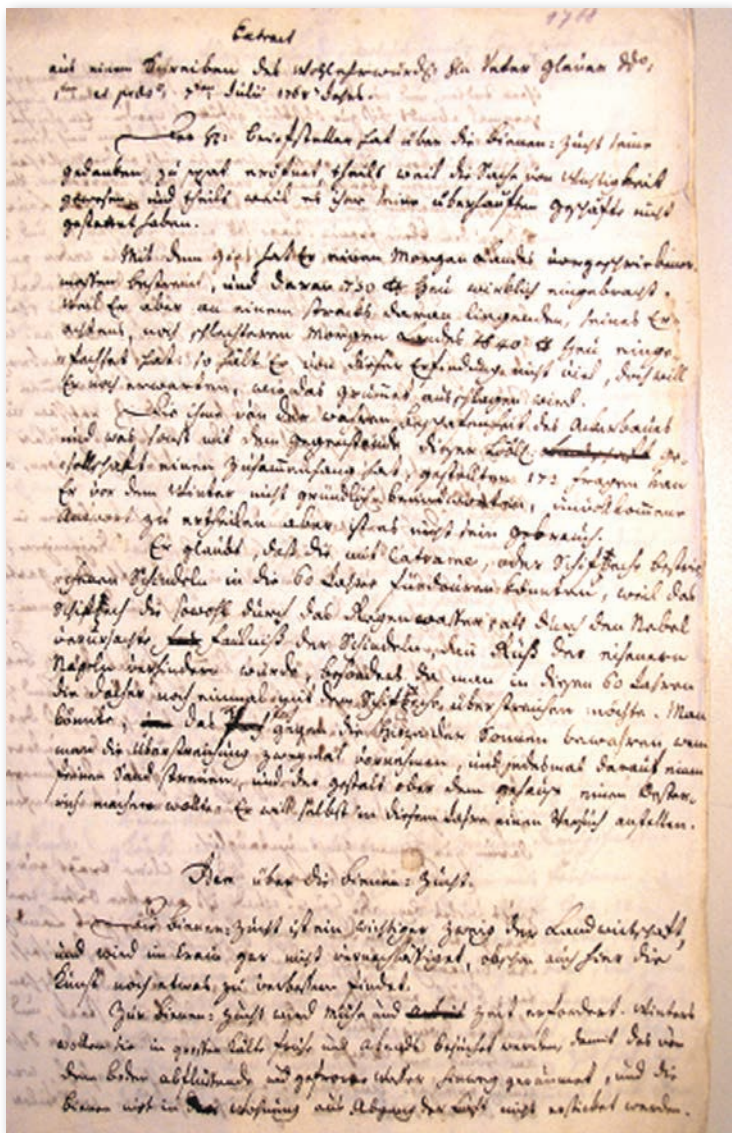 1768
Extract
aus einem Schreiben des Wohlehrwürd: Hn Pater Glauer ddo,
1ten et praes: 7ten Julii 1768 Jahrs.
Der H: Briefsteller hat über die Bienen=Zucht seine
gedanken zu spat eröfnet, theils weil die Sache von Wichtigkeit
gewesen, und theils weil es ihm seine überhauften geschäfte nicht
gestattet haben.
Mit dem Gips hat Er einen Morgen Landes vorgeschriebener
massen bestreuet, und daran 1730 ℔ Heu wirklich eingebracht.
Weil Er aber an einem stracks daran liegenden, seines Er-
achtens, noch schlechteren Morgen Landes 1840 ℔ Heu einge-
fechset hat: so hält Er von dieser Erfindung nicht viel, doch will
Er noch erwarten, wie das grumet ausschlagen wird.
Die ihme von der wahren Beschaffenheit des Ackerbaues
und was sonst mit dem gegenstande dieser Löbl. ge-
sellschaft einen Zusammenhang hat, gestellten 173 Fragen kan
Er vor dem Winter nicht gründlich beantworten, unvollkommene
Antwort zu ertheilen aber ist es nicht sein gebrauch.
Er glaubt, daß die mit Catrame, oder Schifpech bestri-
chenen Schindeln in die 60 Jahre fürdauren könnten, weil das
Schifpech die sowohl durch das Regenwasser, als durch den Nebel
verursachte Fäulniß der Schindeln, den Ruß der eisenen
Nägeln verhindern würde, besonders da man in diesen 60 Jahren
die Dächer noch einmal mit dem Schifpech überstreichen möchte. Man
könnte, das Pech gegen die Hitze der Sonnen bewahren, wenn
man die Überstreichung zweymal vornehmen, und jedesmal darauf einen
feinen Sand streuen, und der gestalt ober dem gehäus einen Oester-
rich machen wollte. Er will selbst in diesem Jahre einen Versuch anstellen.
über die Bienen=Zucht.
Die Bienen=Zucht ist ein wichtiger Zweig der Landwirtschaft,
und wird in Krain gar nicht vernachlässiget, obschon auch hier die
Kunst noch etwas zu verbessern findet.
Zur Bienen=Zucht wird Mühe und Zeit erfordert. Winters
wollen sie in grosser Kälte frühe und Abends besuchet werden, damit das von
dem Boden abfliessende und gefrorne Wasser hinweg geraumet, und die
Bienen nicht in der Wohnung aus Abgang der Luft nicht ersticket werden.